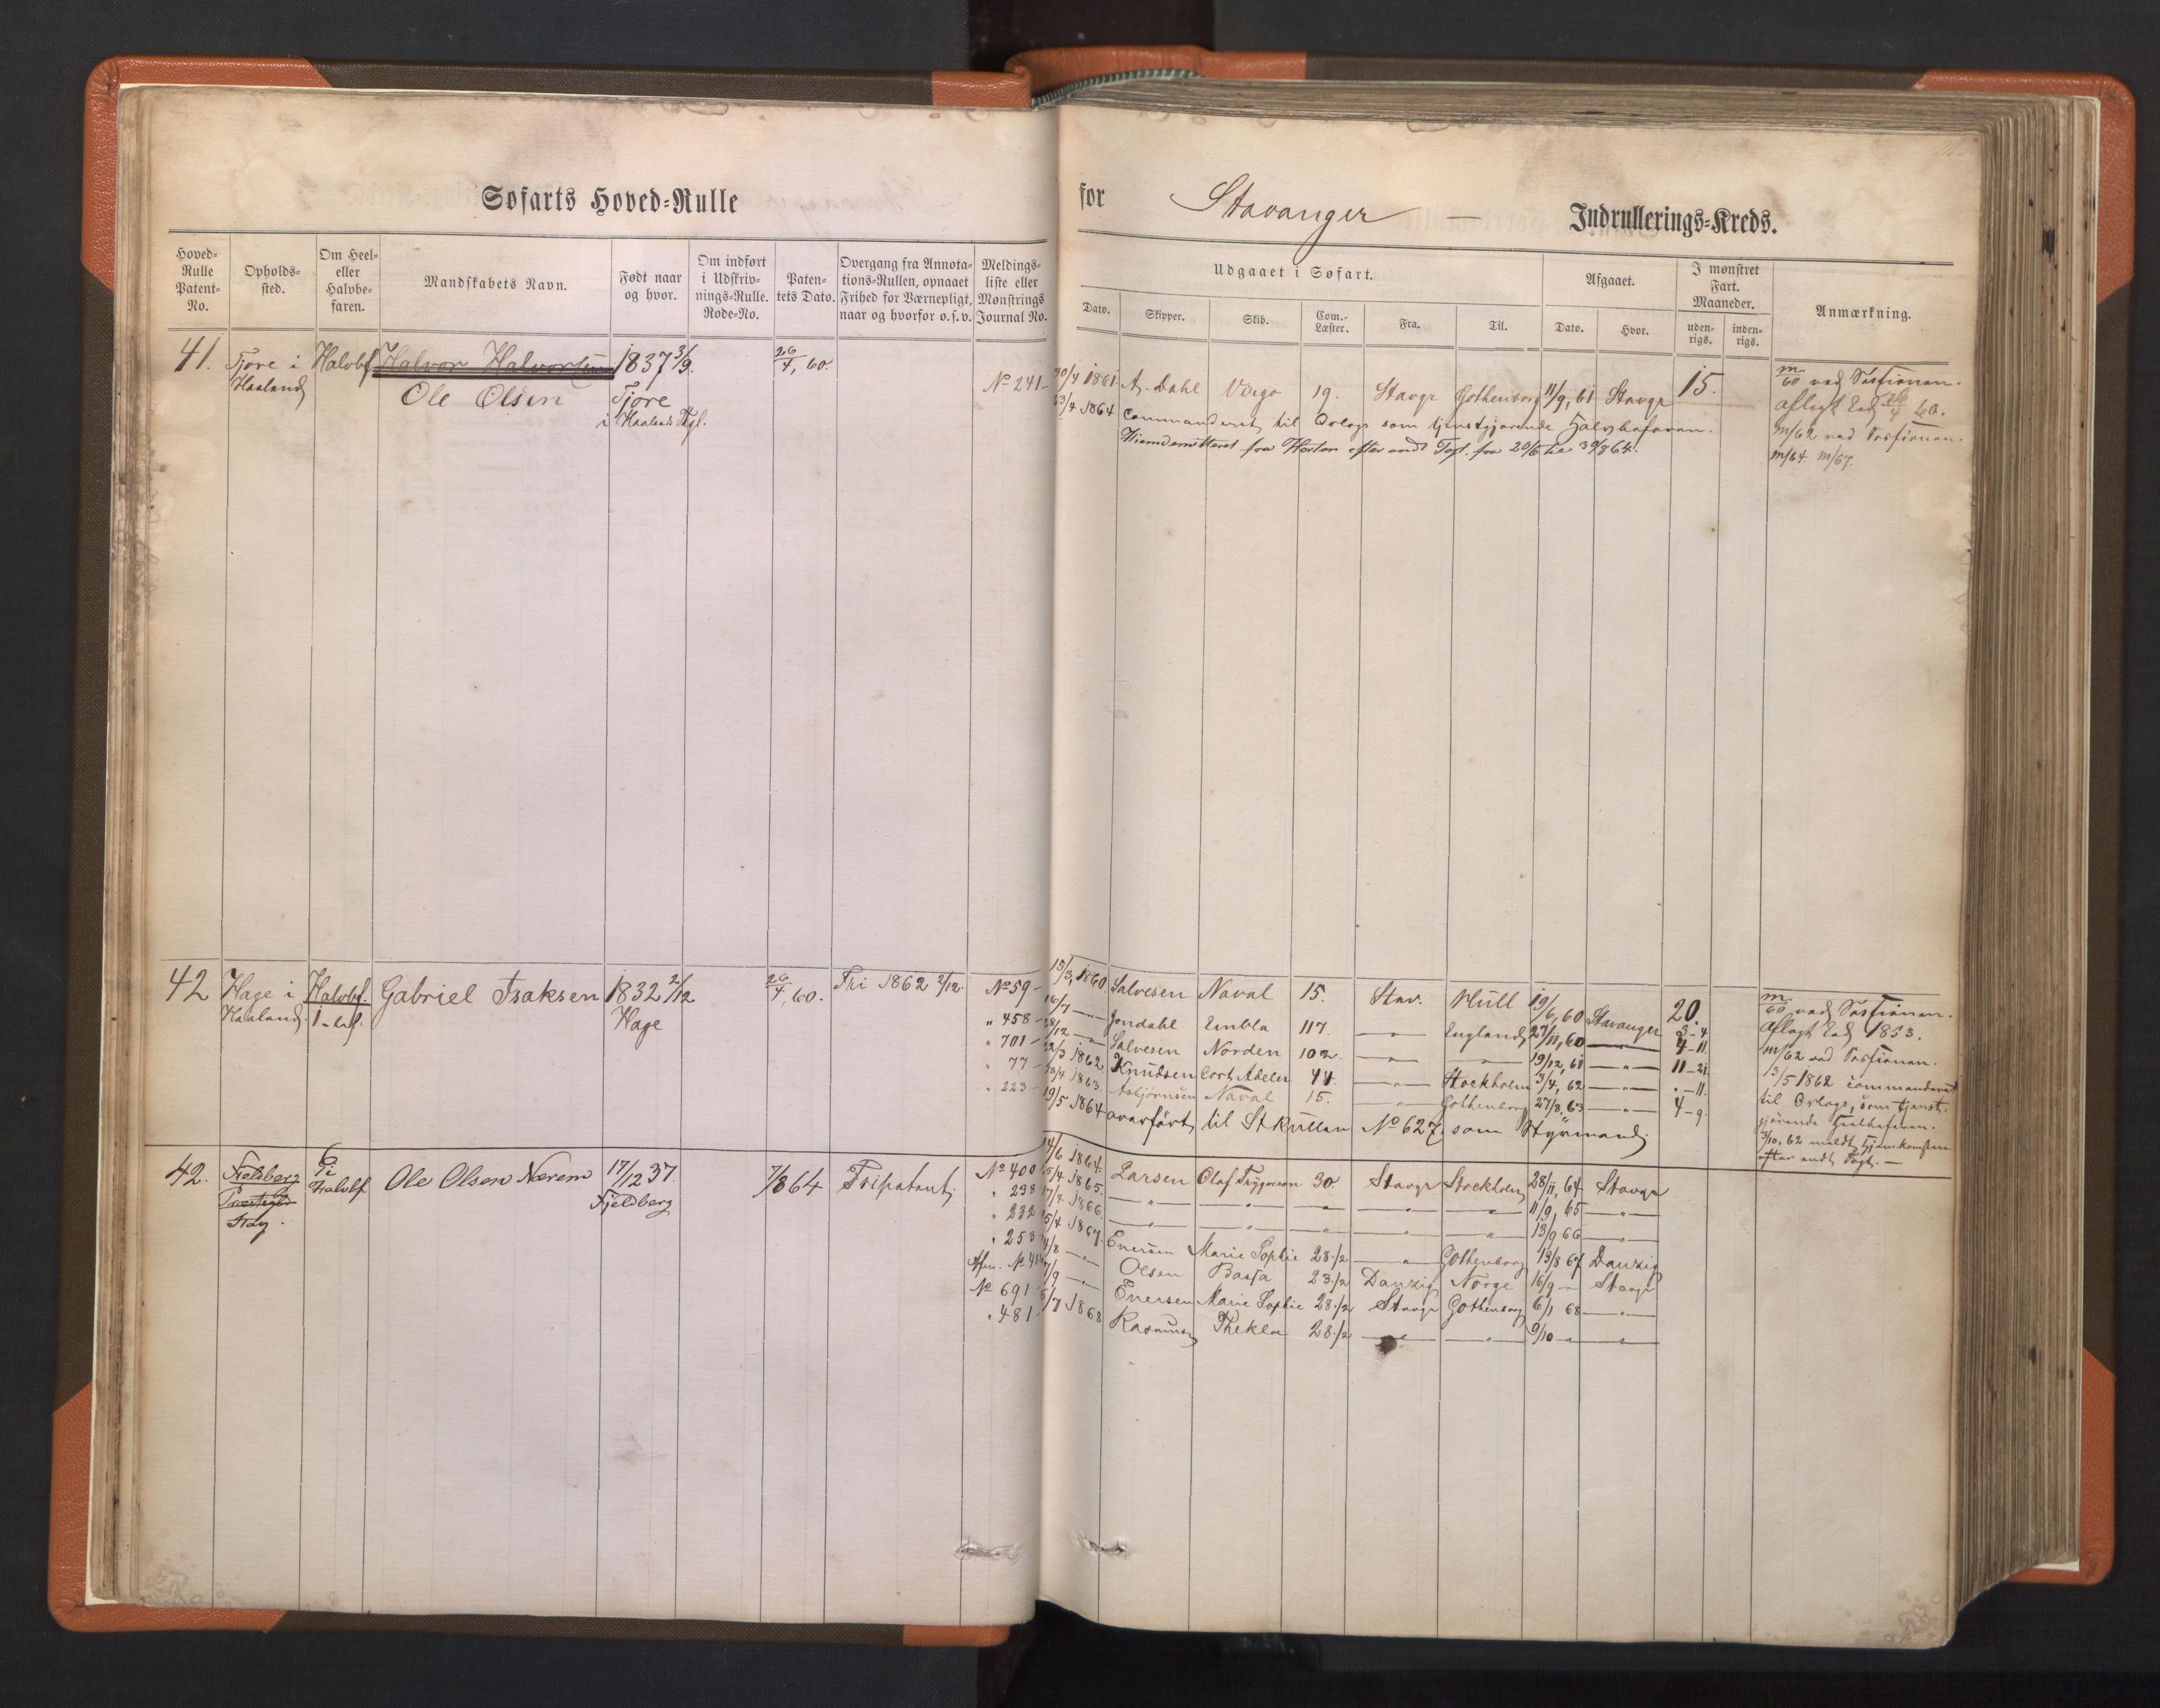 Søfarts Hoved-Rulle
for Stavanger — Indrullerings-Kreds.
Hoved-Rulle Patent-No.
Opholds-sted.
Om Heel- eller Halvbe-faren.
Mandskabets Navn.
Født naar og hvor.
Om indført i Udskriv-nings-Rulle. Rode-No.
Paten-tets Dato.
Overgang fra Annota-tions-Rullen, opnaaet Frihed for Værnepligt, naar og hvorfor o. s. v.
Meldings-liste eller Mønstrings Journal No.
Udgaaet i Søfart.
Dato.
Skipper.
Skib.
Com.-Læster.
Fra.
Til.
Afgaaet.
Dato.
Hvor.
I mønstret Fart. Maaneder.
uden-rigs.
inden-rigs.
Anmærkning.
41. Tjore i Halvbf Halvor Halvorsen 1837 3/9. 26/4, 60.
Haaland Ole Olsen Tjore
i Haalands Pgl.
No 241 – 20/4 1861 A. Dahl Virgo 19. Stavgr Gothenborg 11/9, 61 Stavgr 15.
23/4 1864 Commanderet til Orlogs som tjenstgjørende Halvbefaren.
Hiemdemitteret fra Horten efter endt Togt. fra 20/5 til 30/8 64.
m/60 ved Sessionen.
Aflagt Eed 26/4 60.
m/62 ved Sessionen.
m/64 m/67.
42 Hage i Halvbf. Gabriel Isaksen 1832 2/12 26/4, 60. Fri 1862 2/12
Haaland. Hage
No 59 – 15/3, 1860 Salvesen Naval 15. Stav. Hull 19/6, 60 Stavanger 20.
" 458 – 16/7 — " — Jondahl Embla 117. — England 27/11, 60 — 3 – 4
" 701 – 28/12 — Salvesen Norden 102. — " — — " — 19/12, 61 — " — 4 – 11.
" 77 – 22/3 1862 Knudsen Cort Adeler 44. — " — Stockholm 3/4, 62 — " — 11 – 21
" 223 – 23/4 1863. Asbjørnsen Naval 15. — " — Gothenborg 27/8, 63 — " — " – 11.
4 – 9.
19/5 1864 overført til St Rullen No 627 som Styrmand.
m/60 ved Sessionen.
Aflagt Eed 1853.
m/62 ved Sessionen.
13/5 1862 commanderet
til Orlogs, som tjenst-
gjørende Heelbefaren.
3/10, 62 meldt Hjemkomsten
efter endt Togt. —
42. Fjeldberg 6 Ole Olsen Nærem 17/12 37. 7/8 64 Fripatent.
Præstegld Halvbf Fjeldberg
Stav.
No 400 14/6 1864. Larsen Olaf Trygveson 30. Stavgr Stockholm 28/11, 64 Stavgr
" 238 25/4 1865. — " — — " — — " — — " — — " — 11/9, 65 — " —
" 232 17/4 1866. — " — — " — — " — — " — — " — 13/9 66 — " —
" 253 15/4 1867. Eversen Marie Sophie 28 1/2 — " — Gothenborg 13/8 67 Danzig
Afm. No 484 14/8 — " — Olsen Bassa 23 1/2 Danzig Norge 16/9 — Stavgr
No 691 7/9 — " — Eversen Marie Sophie 28 1/2 Stavgr Gothenborg 6/1 68 — " —
" 481 – 5/7 1868 Rasmussen Thekla 28 1/2 — " — — " — 9/10 — " — — " —